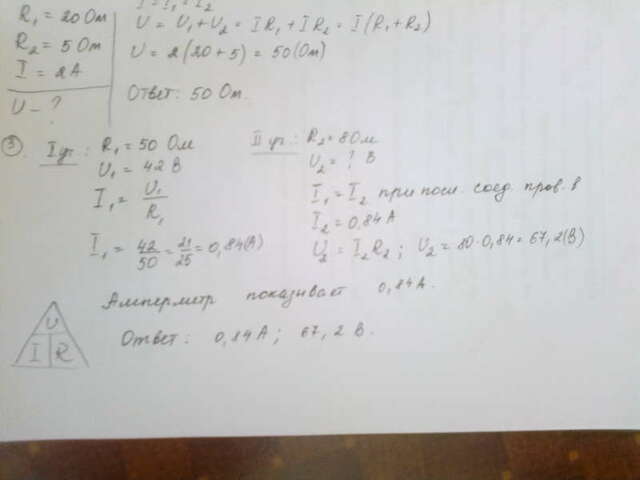 I = I₁ = I₂
R₁ = 20 Ом
U = U₁ + U₂ = IR₁ + IR₂ = I(R₁ + R₂)
R₂ = 5 Ом
U = 2(20 + 5) = 50 (Ом)
I = 2 А
U - ?
Ответ: 50 Ом.
3. I уч.: R₁ = 50 Ом
U₁ = 42 В
I₁ = U₁/R₁
I₁ = 42/50 = 21/25 = 0,84 (А)
II уч.: R₂ = 80 Ом
U₂ = ? В
I₁ = I₂ при посл. соед. пров. в
I₂ = 0,84 А
U₂ = I₂R₂; U₂ = 80·0,84 = 67,2 (В)
Амперметр показывает 0,84 А.
Ответ: 0,84 А; 67,2 В.
U
I R